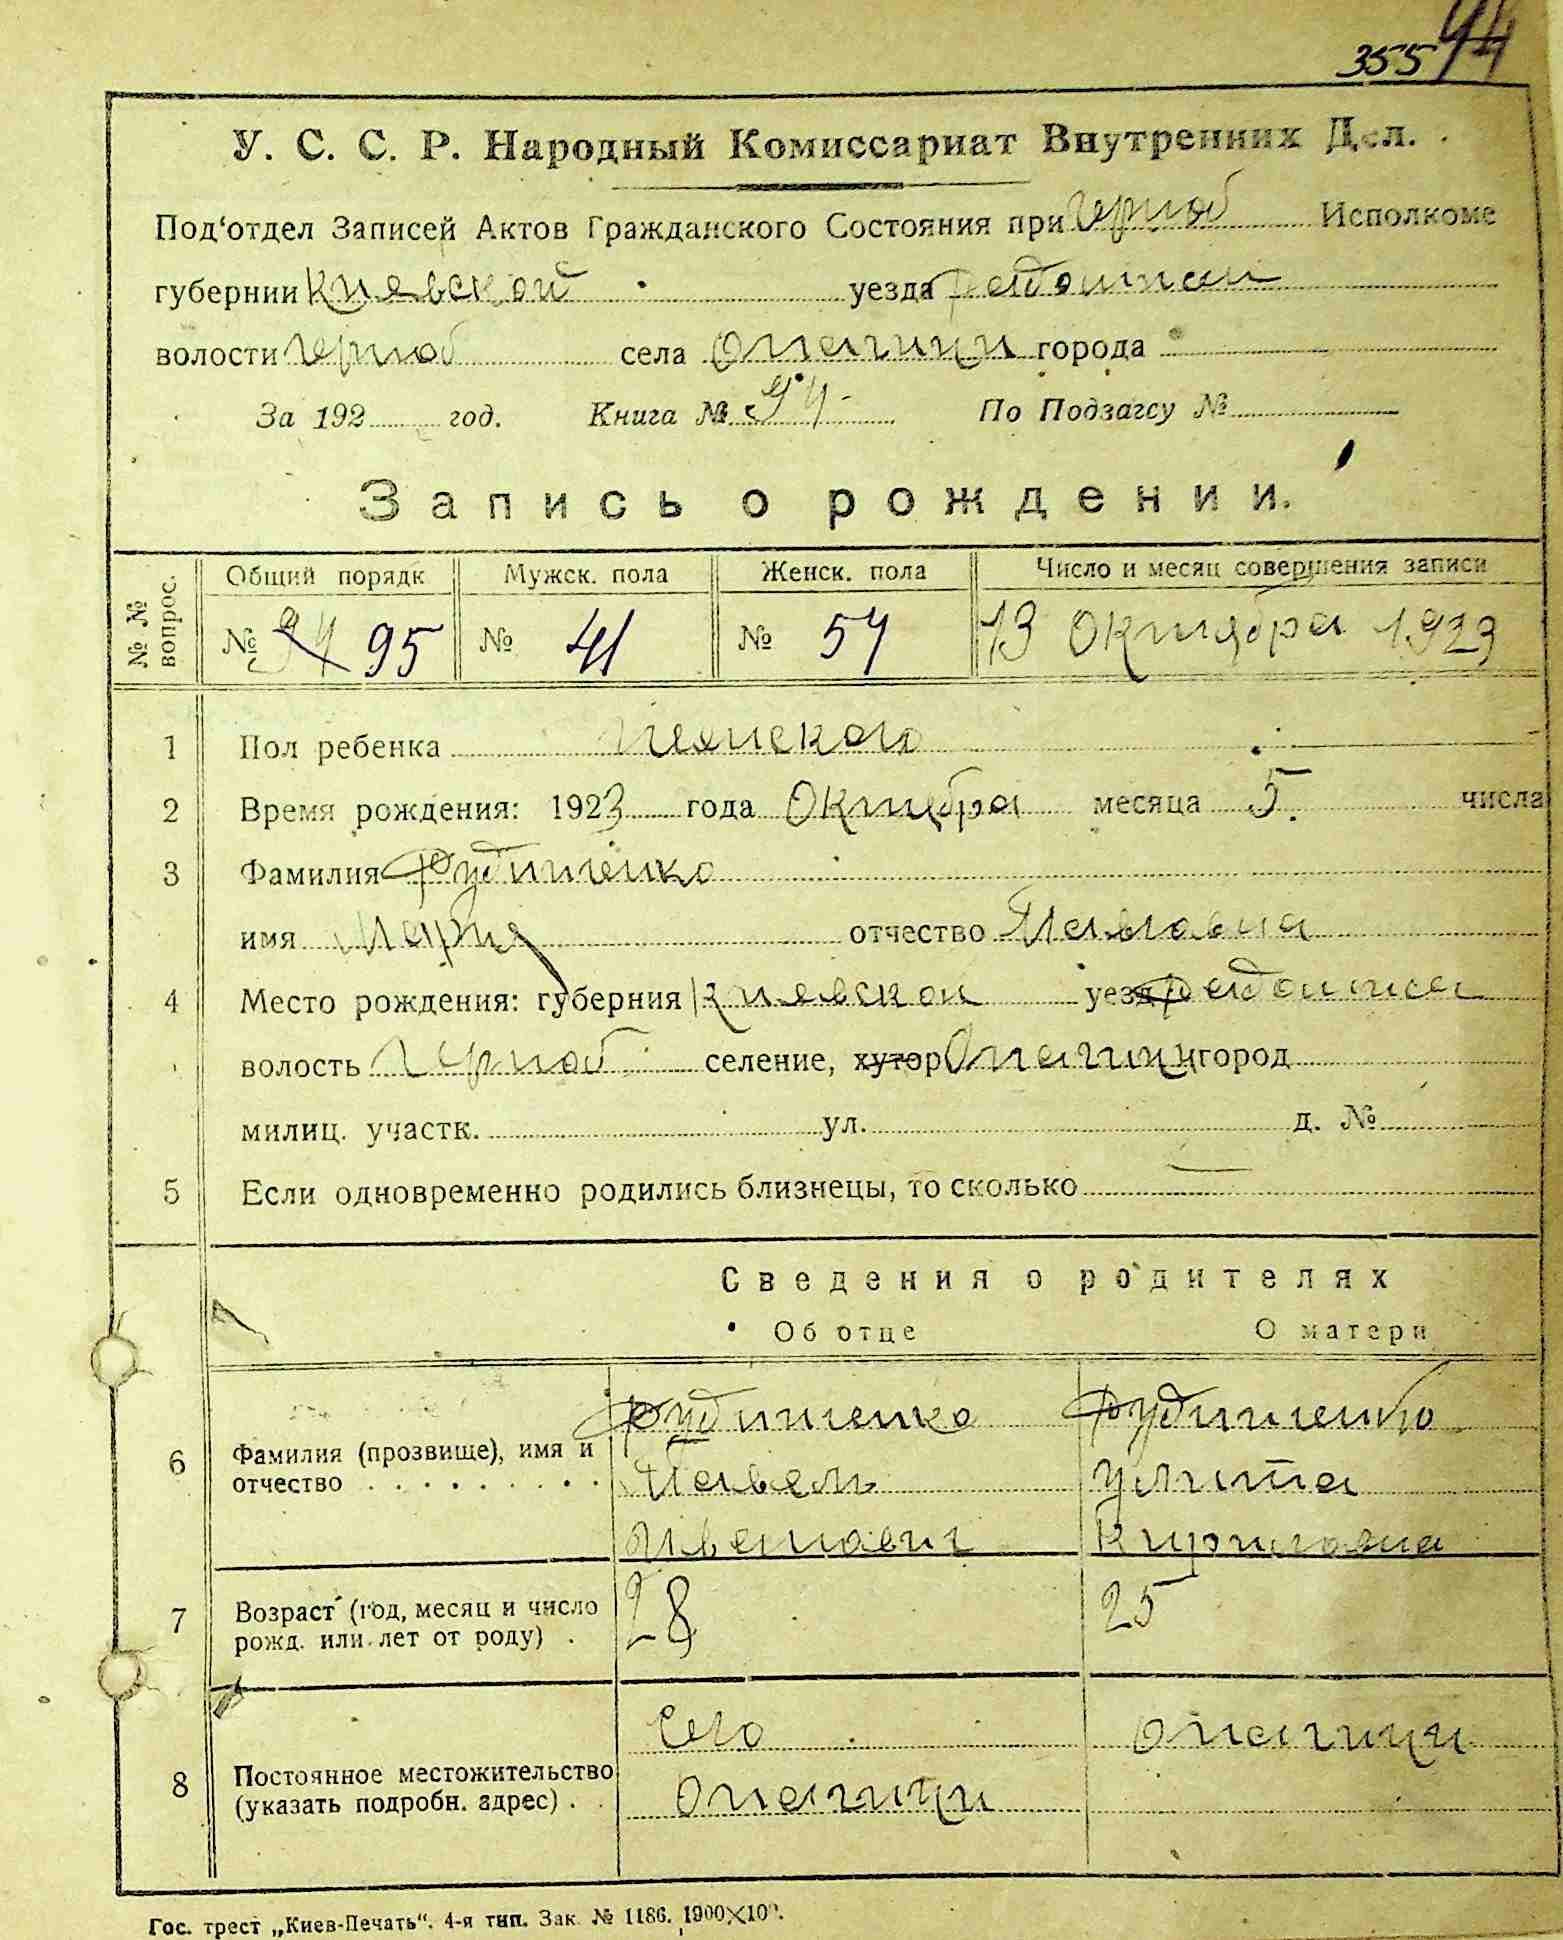 355 94
У. С. С. Р. Народный Комиссариат Внутренних Дел.
Под‘отдел Записей Актов Гражданского Состояния при Черноб Исполкоме
губернии Киевской уезда Радомисл
волости Черноб села Опачичи города
За 192 год. Книга № 94 По Подзагсу №
Запись о рождении.
№ № вопрос. Общий порядк Мужск. пола Женск. пола Число и месяц совершения записи
№ 94 95 № 41 № 54 13 Октября 1923
1 Пол ребенка Женского
2 Время рождения: 1923 года Октября месяца 5 числа
3 Фамилия Рудниченко
имя Мария отчество Павловна
4 Место рождения: губерния Киевской уезд Радомисл
волость Черноб селение, хутор Опачичи город
милиц. участк. ул. д. №
5 Если одновременно родились близнецы, то сколько —
Сведения о родителях
Об отце О матери
6 Фамилия (прозвище), имя и отчество Рудниченко Рудниченко
Павел Улита
Иванович Кириловна
7 Возраст (год, месяц и число рожд. или лет от роду) 28 25
8 Постоянное местожительство (указать подробн. адрес) Село Опачичи
Опачичи
Гос. трест „Киев-Печать“. 4-я тип. Зак. № 1186. 1900×10